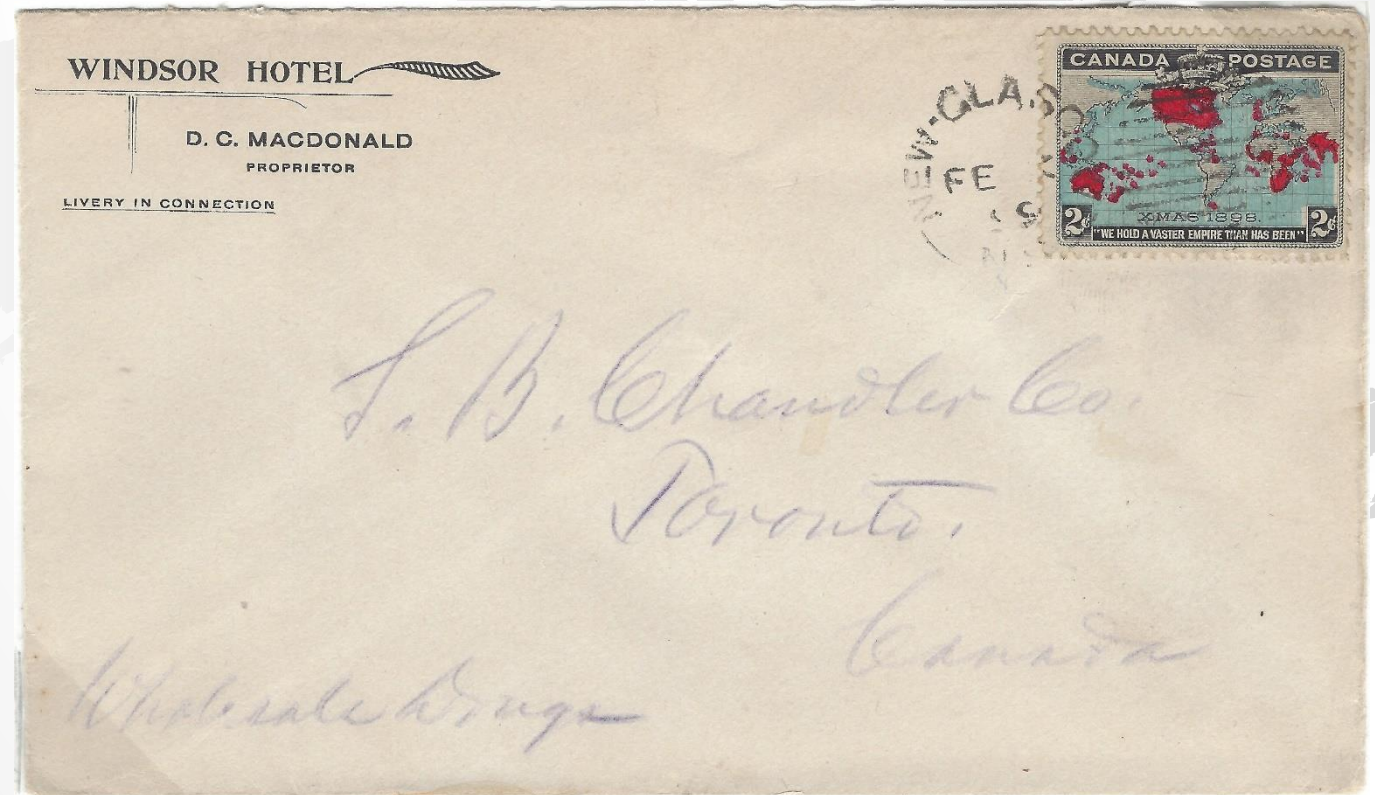 WINDSOR HOTEL
D. C. MACDONALD
PROPRIETOR
LIVERY IN CONNECTION
NEW-GLASG
FE
CANADA POSTAGE
XMAS 1898.
2¢ 2¢
"WE HOLD A VASTER EMPIRE THAN HAS BEEN"
B. Chandler Co.
Toronto.
Canada
Wholesale Drugs